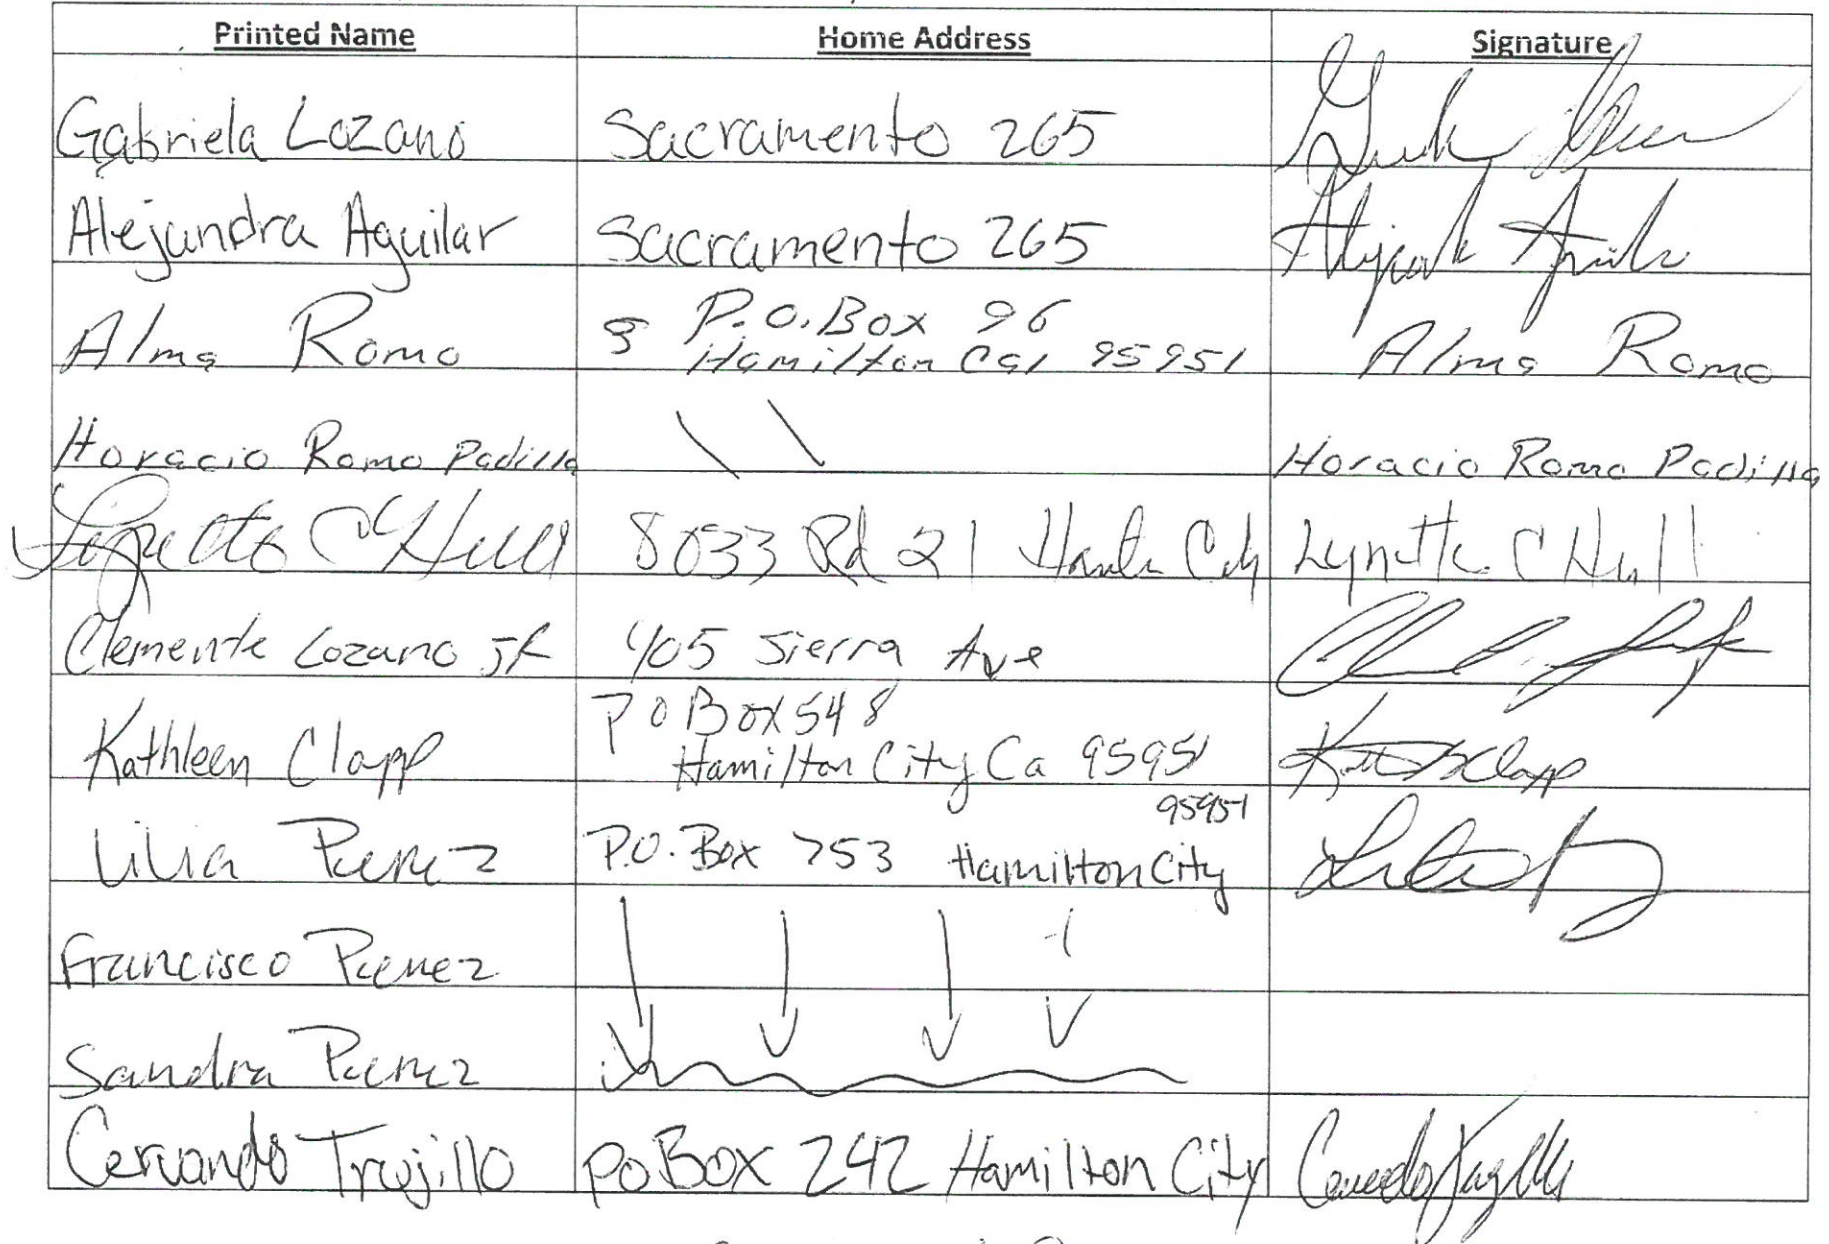 Printed Name Home Address Signature
Gabriela Lozano Sacramento 265
Alejandra Aguilar Sacramento 265 Alejandra Aguilar
P.O. Box 96
Alma Romo Hamilton Cal 95951 Alma Romo
Horacio Romo Padilla \ \ Horacio Romo Padilla
Lynette C Hull 8033 Rd 21 Lynette C Hull
Clemente Lozano Jr 405 Sierra Ave
P O Box 548
Kathleen Clapp Hamilton City Ca 95951 Clapp
95951
Lilia Perez P.O. Box 753 Hamilton City
Francisco Perez
Sandra Perez
Cervando Trujillo PO Box 242 Hamilton City Cervando Trujillo